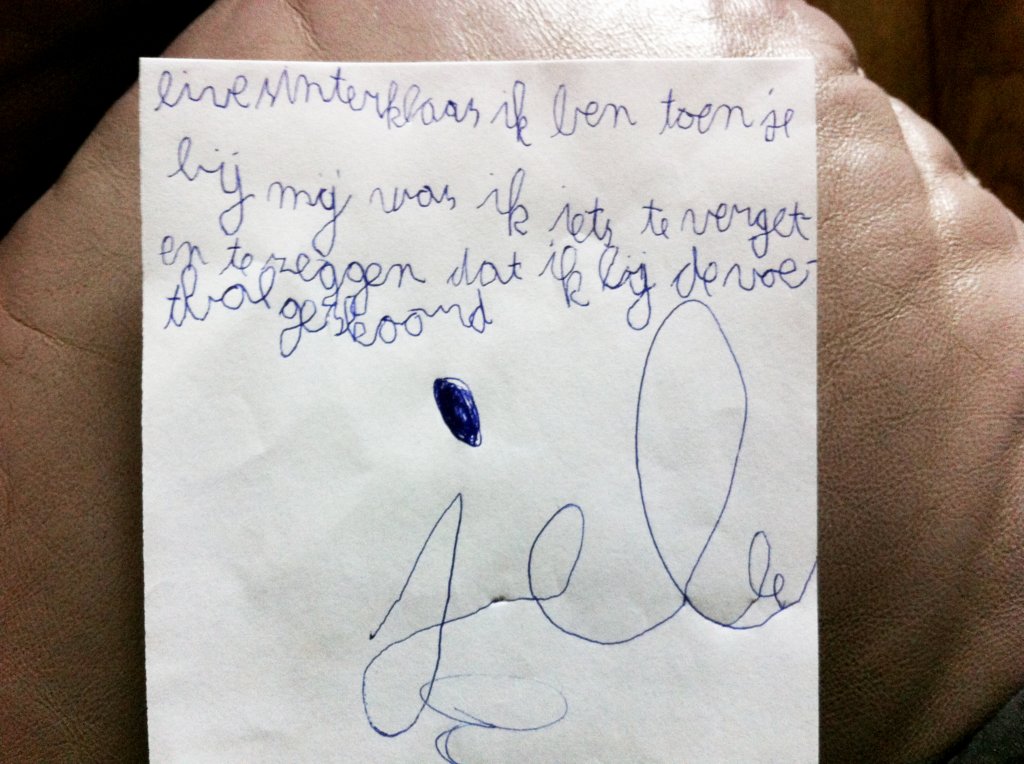 live sinterklaas ik ben toen je
bij mij was ik iets te verget-
en te zeggen dat ik bij de voe-
tbal geskoord
jelle